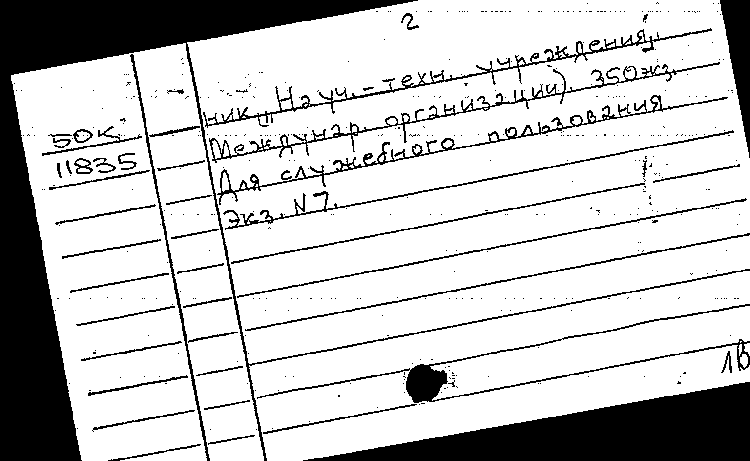 2
ник „Науч.-техн. учреждения"
50к Междунар. организации) 350экз.
11835 Для служебного пользования
Экз. N 7.
1В